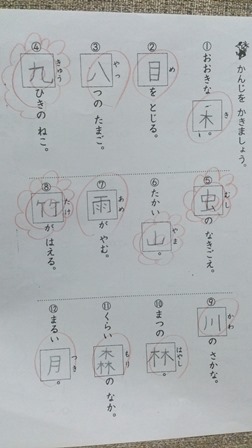 かんじを かきましょう。
① おおきな 木(き)。
② 目(め)を とじる。
③ 八(やっ)つの たまご。
④ 九(きゅう)ひきの ねこ。
⑤ 虫(むし)の なきごえ。
⑥ たかい 山(やま)。
⑦ 雨(あめ)が やむ。
⑧ 竹(たけ)が はえる。
⑨ 川(かわ)の さかな。
⑩ まつの 林(はやし)。
⑪ くらい 森(もり)の なか。
⑫ まるい 月(つき)。